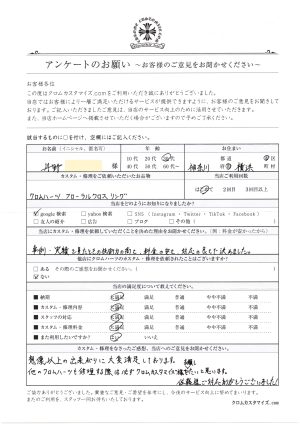 アンケートのお願い ～お客様のご意見をお聞かせください～
お客様各位
この度はクロムカスタマイズ.comをご利用いただき誠にありがとうございました。
当店ではお客様により一層ご満足いただけるサービスが提供できますように、お客様のご意見をお聞きしております。ご記入いただきましたご意見は、当店のサービス向上のために活用させていただきます。
また、当店ホームページへ掲載させていただく場合がございますので予めご了承ください。
該当するものに○を付け、空欄にはご記入ください。
お名前（イニシャル、匿名可） 年齢 お住まい
様 10代 20代 30代 都道 区
40代 50代 60代 神奈川 府県 横浜 町村
カスタム・修理をご依頼いただいたお品物 当店ご利用回数
クロムハーツ フローラルクロス リング はじめて 2回目 3回目以上
当店をどのようにお知りになりましたか？
google検索 yahoo検索 SNS（Instagram・Twitter・TikTok・Facebook）
友人の紹介 広告 ブログ その他（ ）
カスタム・修理を当店に依頼していただくことを決めた理由をお聞かせください。（例：料金が安かったから）
事例・実績を見たときの技術力の高さ、料金の安さ、対応の良さで決めました。
他店にクロムハーツのカスタム・修理を依頼されたことはございますか？
ある
ない
当店の満足度について教えてください。
■ 納期 大満足 満足 普通 やや不満 不満
■ カスタム・修理内容 大満足 満足 普通 やや不満 不満
■ スタッフの対応 大満足 満足 普通 やや不満 不満
■ カスタム・修理料金 大満足 満足 普通 やや不満 不満
■ また利用したいですか？ はい いいえ
カスタム・修理をなさったご感想、当店へのご意見をお聞かせください。
想像以上の出来上がりに大変満足しております。
他のクロムハーツを修理する際は必ずクロムカスタマイズ様にお願いしたいと思います。
ご対応ありがとうございました！
ご協力ありがとうございました。貴重なご意見・ご要望を参考にし、今後のサービス向上に努めてまいります。
またのご利用を、スタッフ一同お待ちいたしております。
クロムカスタマイズ.com